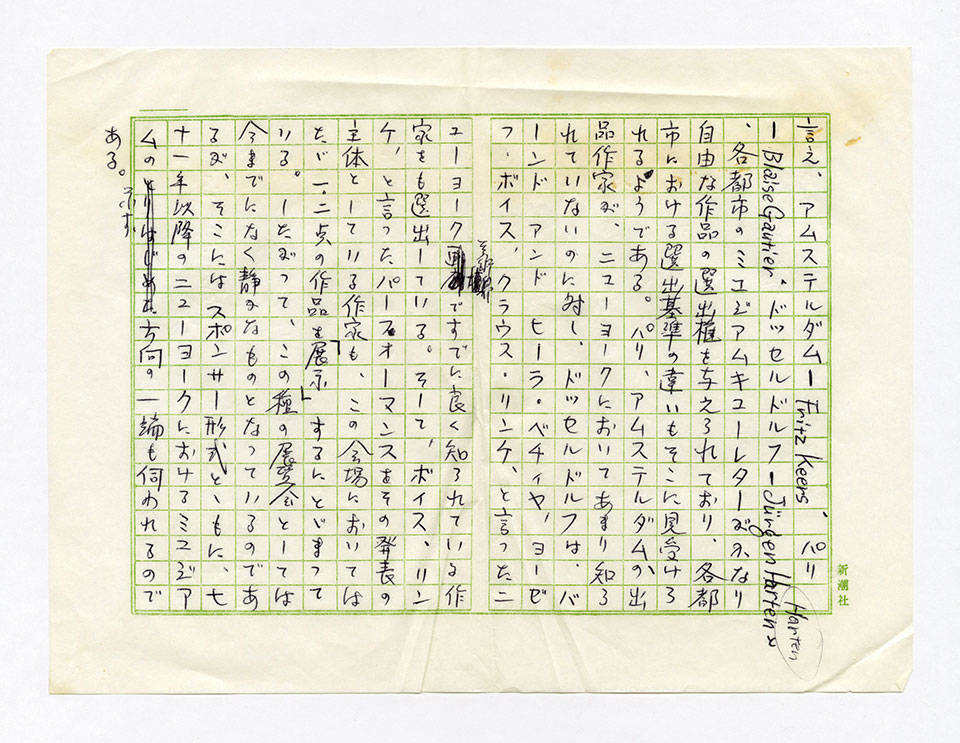 、アムステルダムーFritz Keers、パリ
ーBlaise Gautier、ドッセルドルフーJürgen Hartenと
Harten
、各都市のミュゼアムキューレターがかなり
自由な作品の選出権を与えられており、各都
市における選出基準の違いもそこに見受けら
れるようである。パリ、アムステルダムの出
品作家が、ニューヨークにおいてあまり知ら
れていないのに対し、ドッセルドルフは、バ
ーンド アンド ヒーラ・ベチィヤ、ヨーゼ
フ・ボイス、クラウス・リンケ、と言ったニ
ューヨークですでに良く知られている作
家をも選出している。そして、ボイス、リン
ケ、と言ったパーフォーマンスをその発表の
主体としている作家も、この会場においては
ただ一・二点の作品を「展示」するにとどまって
いる。したがって、この種の展覧会としては
今までになく静かなものとなっているのであ
るが、そこにはスポンサー形式とゝもに、七
十一年以降のニューヨークにおけるミュゼア
ムの示す方向の一端も伺われるので
ある。
新潮社